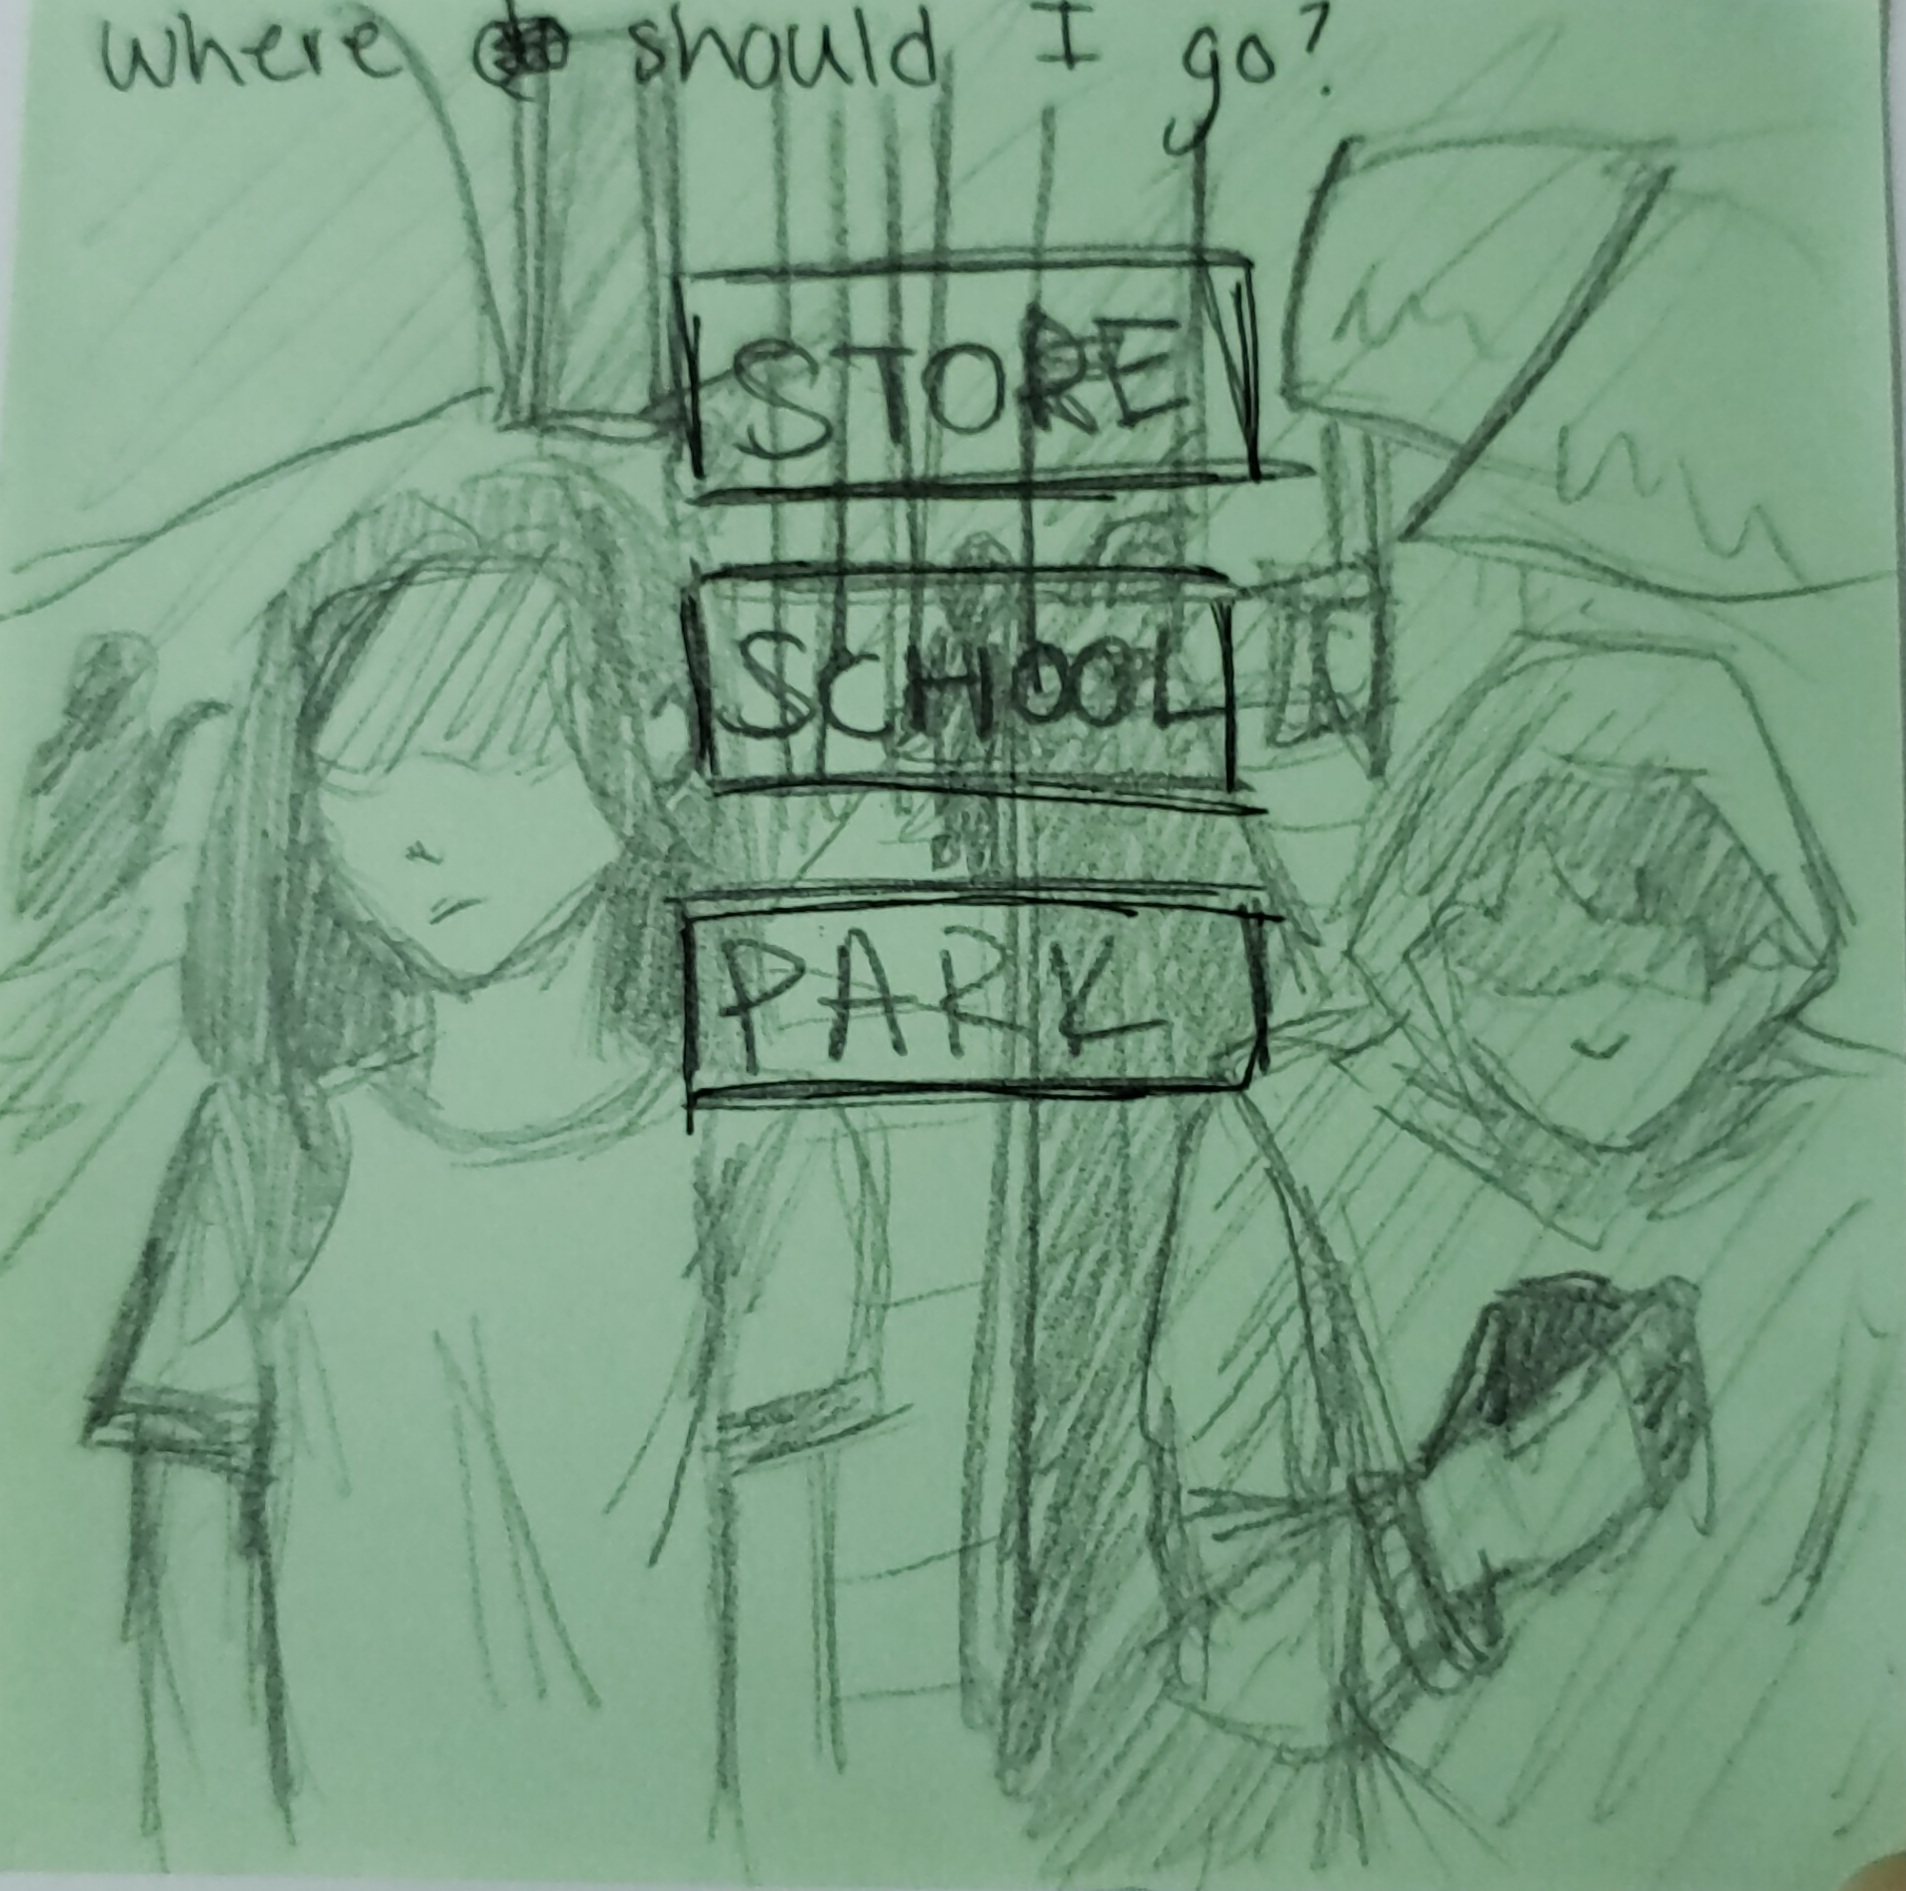 where should I go?
STORE
SCHOOL
PARK